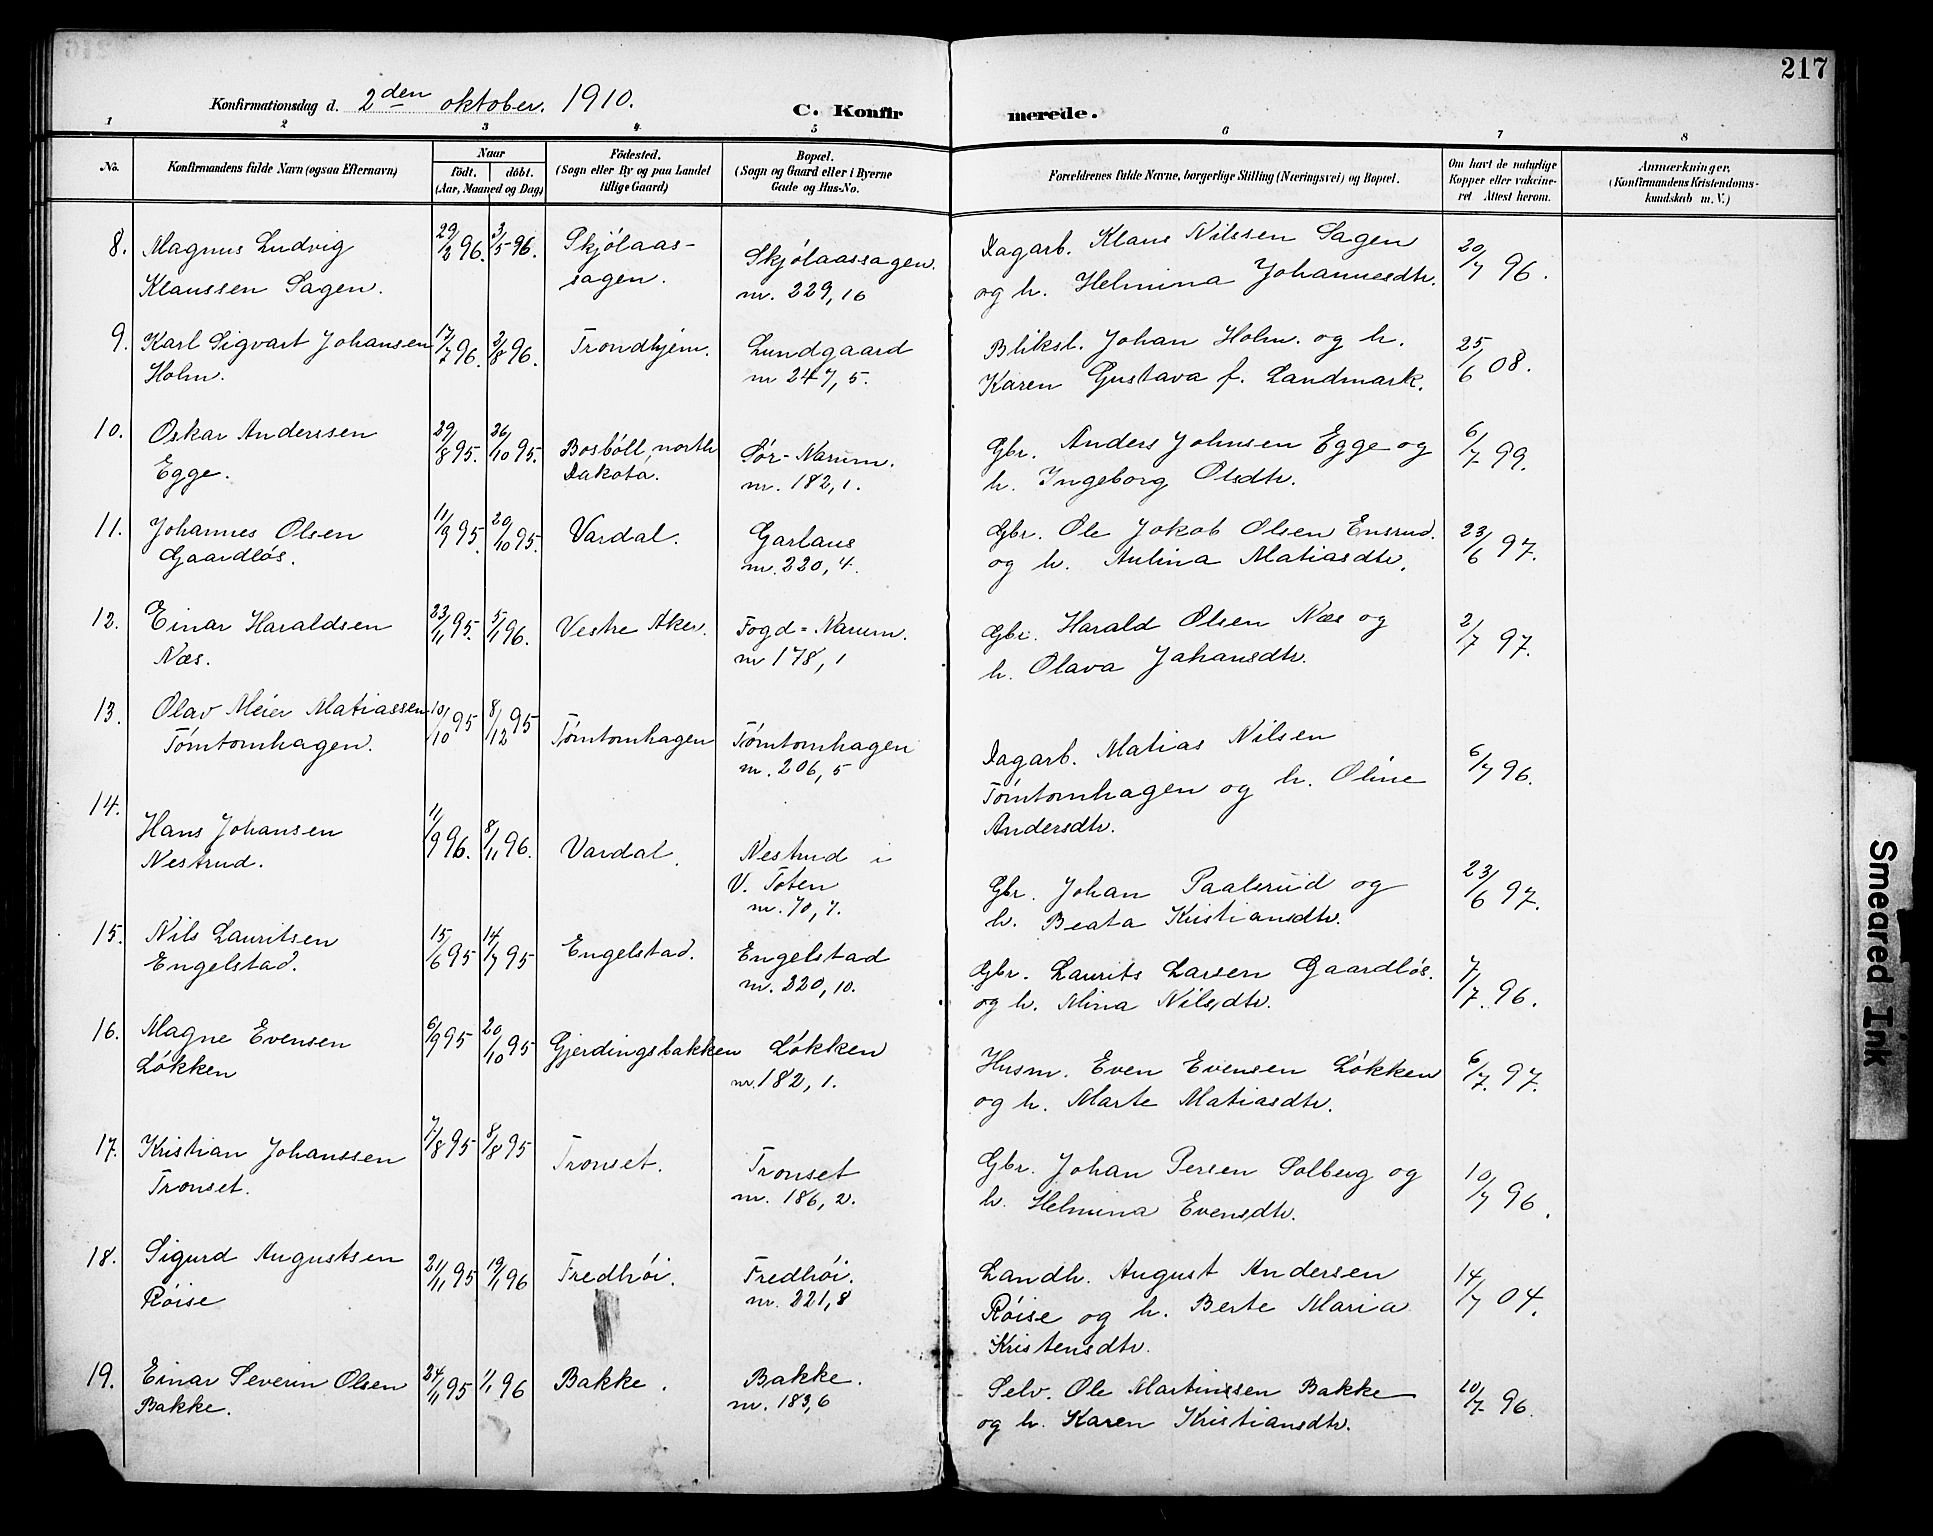 217
Konfirmationsdag d. 2den oktober. 1910.
C. Konfirmerede.
1 2 3 4 5 6 7 8
No.
Konfirmandens fulde Navn (ogsaa Efternavn)
Naar
födt. döbt.
(Aar, Maaned og Dag)
Födested.
(Sogn eller By og paa Landet
tillige Gaard)
Bopæl.
(Sogn og Gaard eller i Byerne
Gade og Hus-No.
Forældrenes fulde Navne, borgerlige Stilling (Næringsvei) og Bopæl.
Om havt de naturlige
Kopper eller vaccine-
ret Attest herom.
Anmærkninger.
(Konfirmandens Kristendoms-
kundskab m. V.)
8. Magnus Ludvig 29/2 96. 3/5 96. Skjölaas- Skjölaassagen. Dagarb. Klaus Nilssen Sagen 20/7 96.
Klaussen Sagen. sagen. nr. 229, 16 og h. Helmina Johannesdtr.
9. Karl Sigvart Johansen 17/7 96. 2/8 96. Trondhjem. Lundgaard Bliksl. Johan Holm. og h. 25/6 08.
Holm. nr 247, 5. Karen Gustava f. Landmark.
10. Oskar Anderssen 29/8 95. 26/10 95. Bosböll, north Sör-Narum. Gbr. Anders Johnsen Egge og 6/7 99.
Egge. Dakota. nr. 182, 1. h. Ingeborg Olsdtr.
11. Johannes Olsen 11/9 95. 20/10 95. Vardal. Garlaus Gbr. Ole Jokob Olsen Ensrud. 23/6 97.
Gaardlös. nr. 220, 4. og h. Aulina Matiasdtr.
12. Einar Haraldsen 23/11 95. 5/1 96. Vestre Aker. Fogd=Narum. Gbr. Harald Olsen Næs og 2/7 97.
Næs. nr 178, 1 h. Olava Johansdtr.
13. Olav Meier Matiassen 10/10 95 8/12 95 Tömtomhagen Tömtomhagen Dagarb. Matias Nilsen 6/7 96.
Tömtomhagen. nr. 206, 5 Tömtomhagen og h. Oline
Andersdtr.
14. Hans Johansen 11/9 96. 8/11 96. Vardal. Nestrud i Gbr. Johan Paalsrud og 23/6 97.
Nestrud. V. Toten h. Beata Kristiansdtr.
nr. 70, 7.
15. Nils Lauritsen 15/6 95 14/7 95 Engelstad. Engelstad Gbr. Laurits Larsen Gaardlös. 7/7. 96.
Engelstad. nr. 220, 10. og h. Mina Nilsdtr.
16. Magne Evensen 6/9 95 20/10 95 Gjerdingsbakken Lökken Husm. Even Evensen Lökken 6/7. 97.
Lökken nr. 182, 1. og h. Marte Matiasdtr.
17. Kristian Johanssen 7/8 95 8/8 95 Tronset. Tronset Gbr. Johan Persen Solberg og 10/7 96.
Tronset. nr. 186, 2. h. Helmina Evensdtr.
18. Sigurd Augustsen 21/11 95 19/1 96 Fredhöi. Fredhöi. Landh. August Andersen 14/7 04.
Röise nr. 221, 8 Röise og h. Berte Maria
Kristensdtr.
19. Einar Severin Olsen 24/11 95 1/1 96 Bakke. Bakke. Selv. Ole Martinssen Bakke 10/7 96.
Bakke. nr. 183, 6 og h. Karen Kristiansdtr.
Smeared Ink